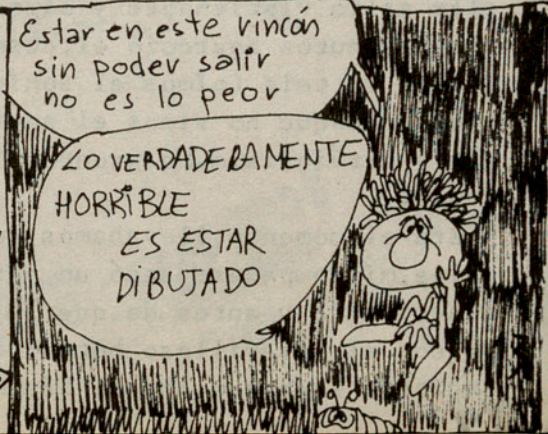 Estar en este rincón
sin poder salir
no es lo peor
LO VERDADERAMENTE
HORRIBLE
ES ESTAR
DIBUJADO